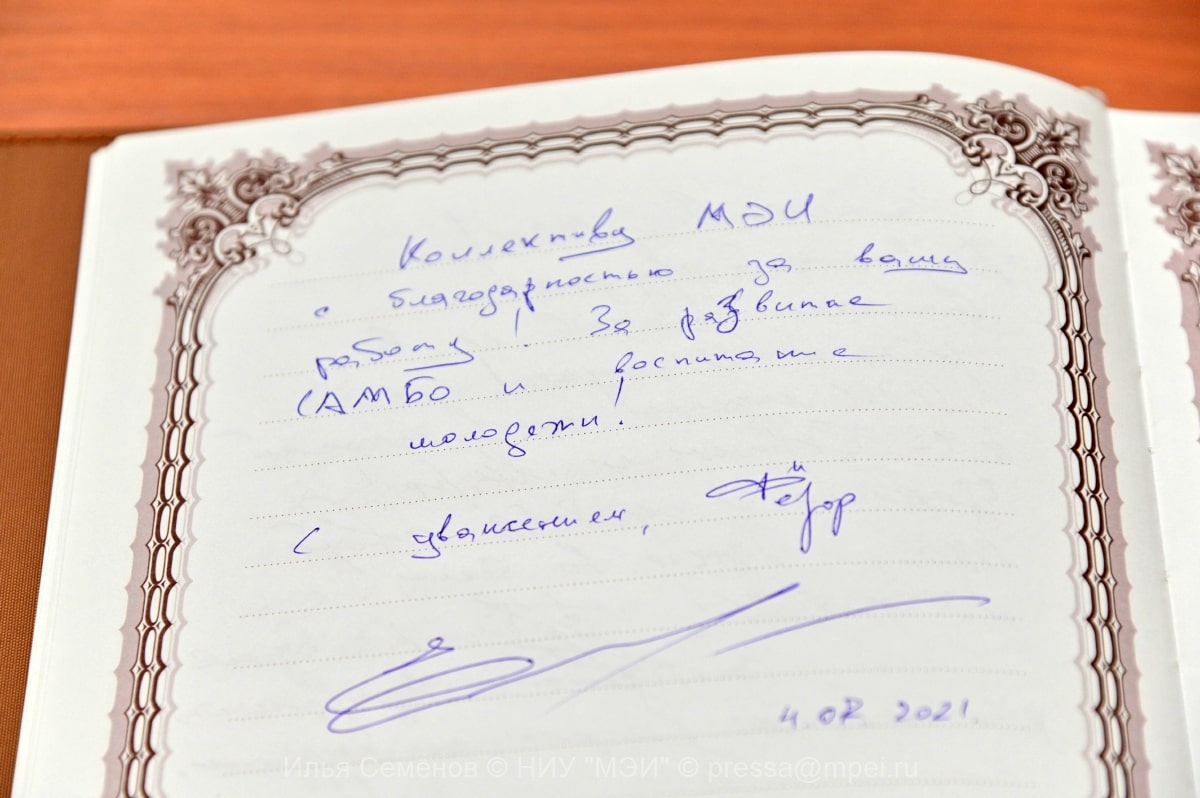 Коллективу МЭИ
с благодарностью за вашу
работу! За развитие
САМБО и воспитание
молодежи!
С уважением, Фёдор
2021
Илья Семенов © НИУ "МЭИ" © pressa@mpei.ru